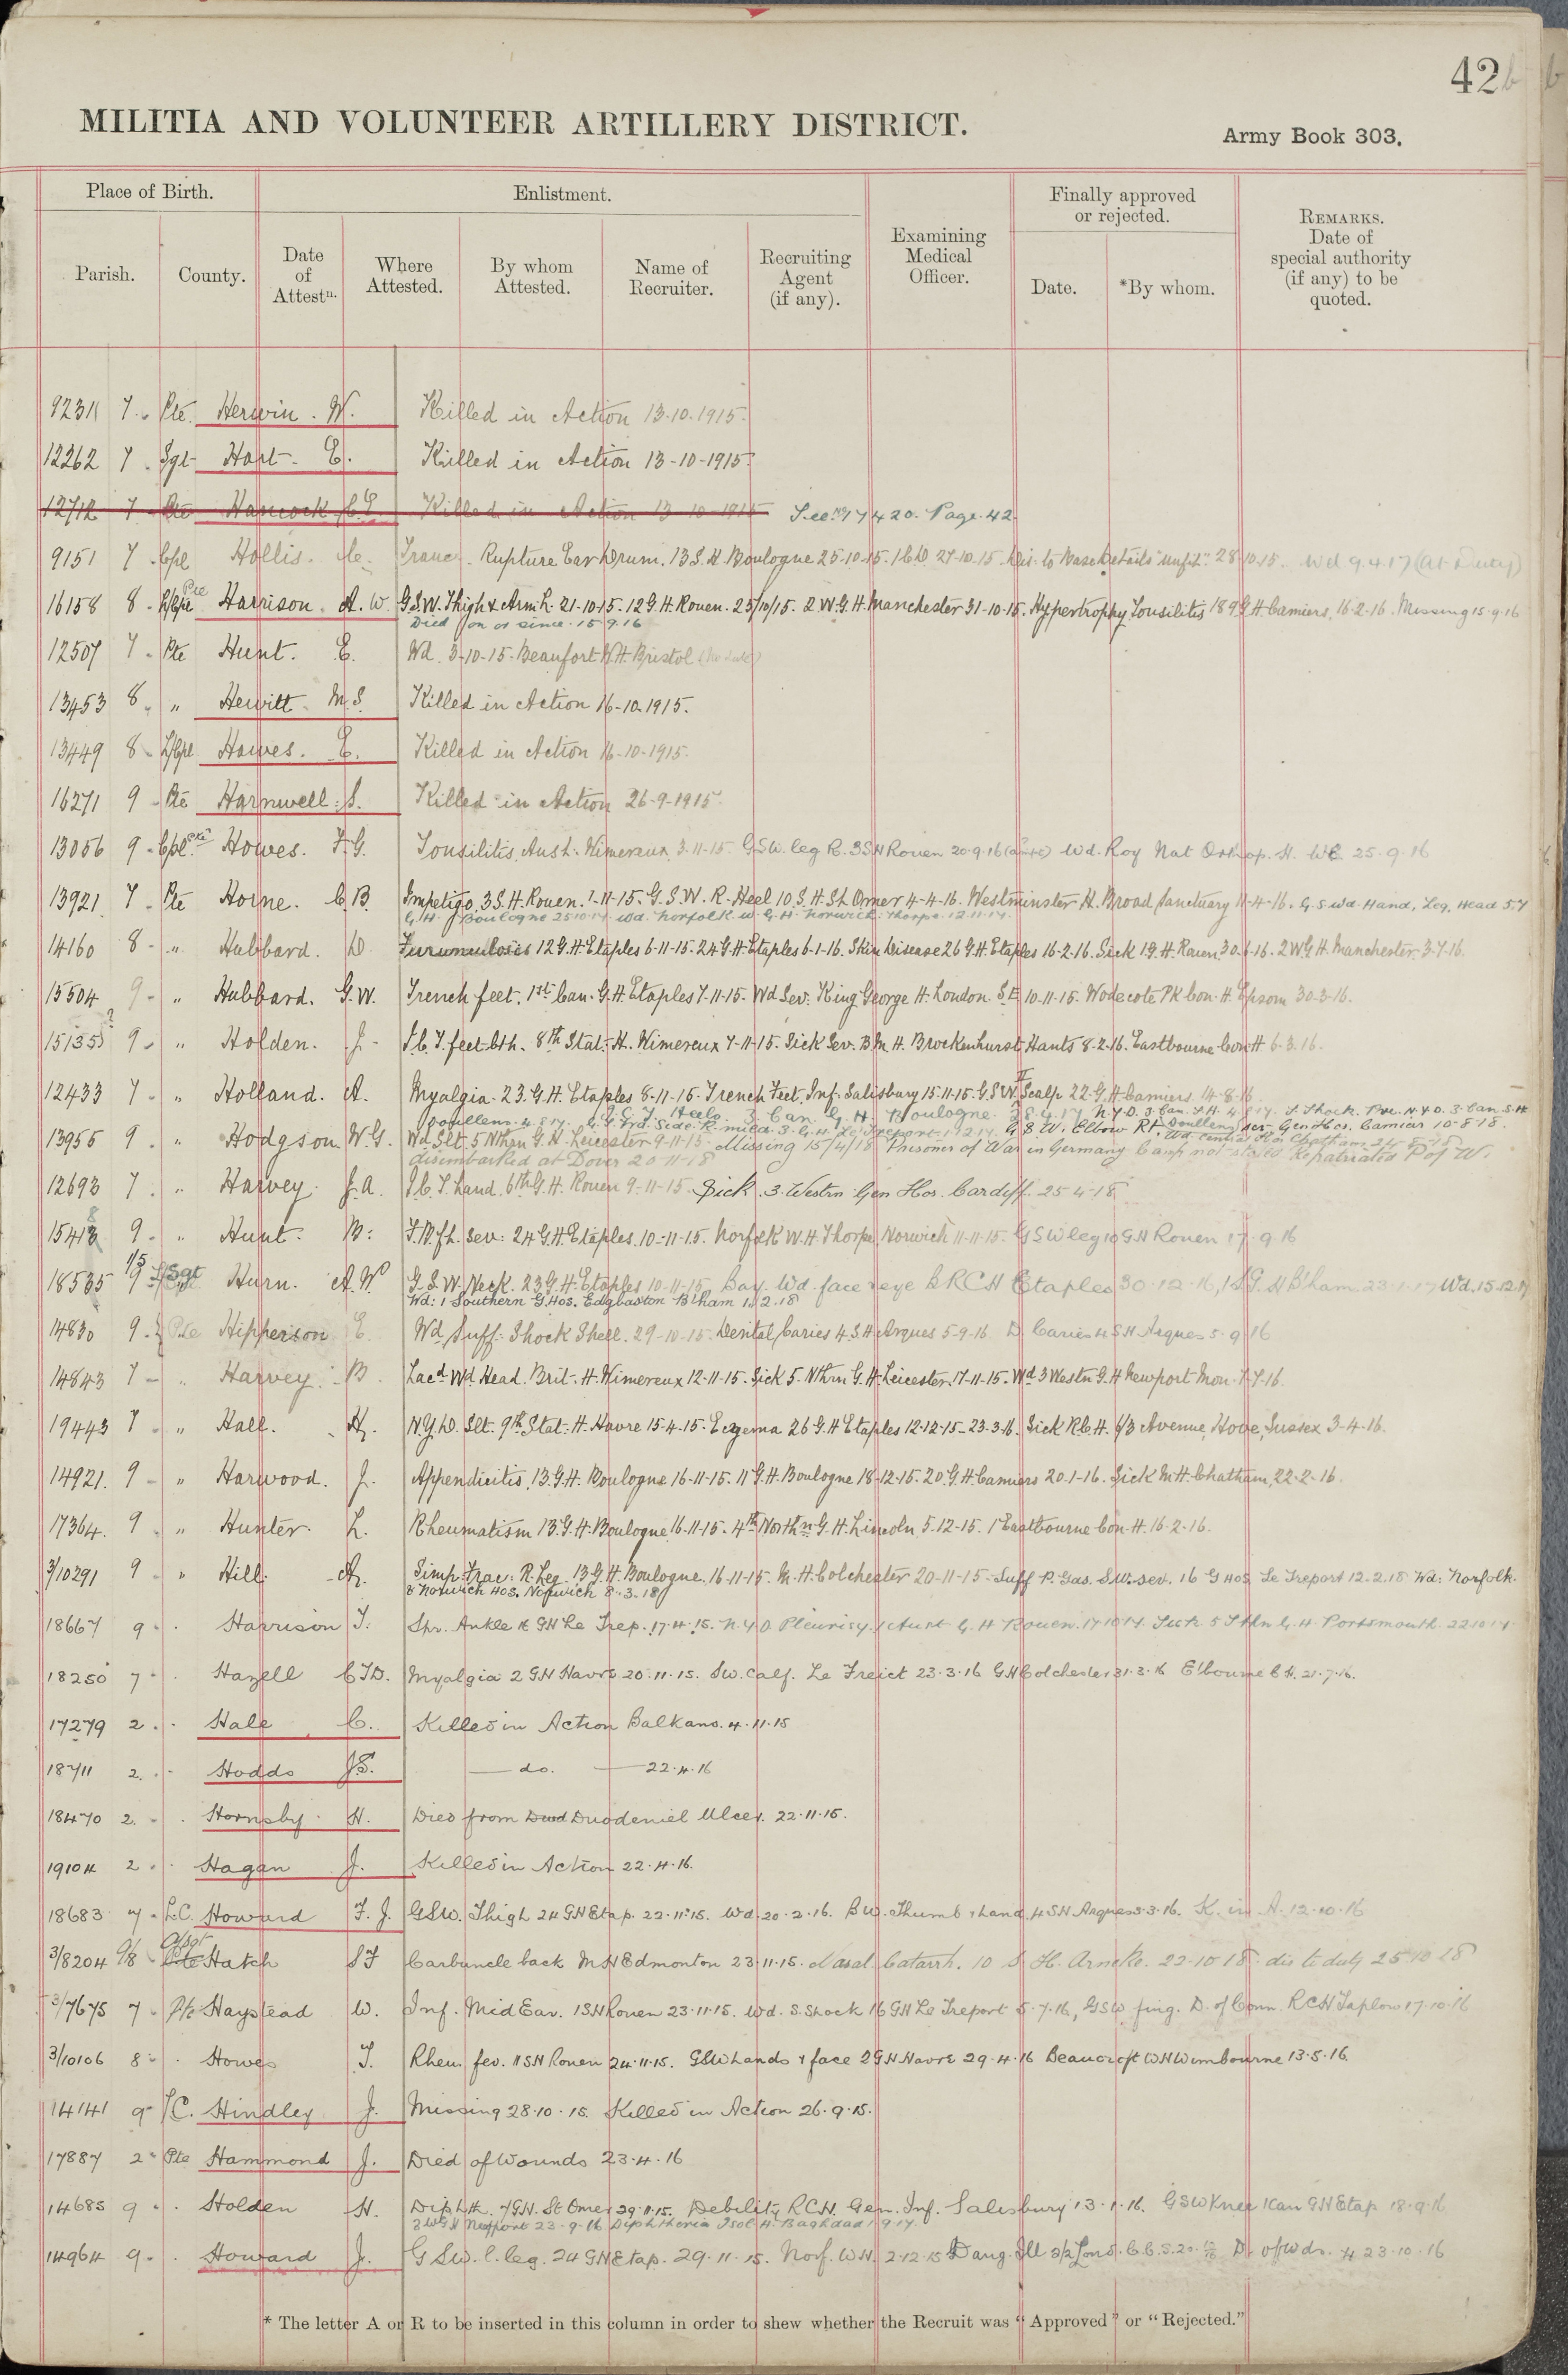 42b
MILITIA AND VOLUNTEER ARTILLERY DISTRICT.
Army Book 303.
Place of Birth.
Enlistment.
Finally approved or rejected.
Parish.
County.
Date of Attestn.
Where Attested.
By whom Attested.
Name of Recruiter.
Recruiting Agent (if any).
Examining Medical Officer.
Date.
*By whom.
REMARKS. Date of special authority (if any) to be quoted.
9231 7. Pte. Herwin. W. Killed in Action 13.10.1915.
12262 7. Sgt Hart. E. Killed in Action 13-10-1915.
12712 7 Pte Hancock C.E. Killed in Action 13-10-1915 See No 17420. Page. 42.
9151 7. Cpl Hollis. Rupture Ear Drum. 13 S.H. Boulogne 25-10-15. 1 C.D. 27.10.15 dis. to Base details "Unfit". 28.10.15. Wd 9.4.17 (at Duty)
16158 8. L/Cpl Pte Harrison. A.W. G.S.W. Thigh & Arm L. 21-10-15. 12 G.H. Rouen. 25/10/15. 2 W.G.H. Manchester 31-10-15. Hypertrophy Tonsilitis 18 G.H. Camiers. 16-2-16. Missing 15.9.16
Died on or since 15.9.16
12507 7. Pte Hunt. E. Wd. 3-10-15. Beaufort W.H. Bristol (No date)
13453 8. " Hewitt. M.S. Killed in Action 16-10.1915.
13449 8. L/Cpl Hawes. E. Killed in Action 16-10-1915.
16271 9. Pte Harnwell. S. Killed in Action 26-9-1915.
13056 9. Cpl. Howes. F.G. Tonsilitis, Aust. Wimereux 3-11-15. GSW. leg R. 3 S H Rouen 20.9.16 Wd. Roy Nat Orthop. H. WC 25.9.16
13921 7. Pte Horne. C.B. Impetigo, 3 S.H. Rouen. 7-11-15. G.S.W. R. Heel 10 S.H. St Omer 4-4-16. Westminster H. Broad Sanctuary 11-4-16. G.S.Wd. Hand, Leg, Head 57
G.H. Boulogne 25.10.17. Wd. Norfolk W.G.H. Norwich. Thorpe. 12.11.17.
14160 8. " Hubbard. D. Furunculosis 12 G.H. Etaples 6-11-15. 24 G.H. Etaples 6-1-16. Skin Disease 26 G.H. Etaples 16-2-16. Sick 1 G.H. Rouen 30.6.16. 2 W.G.H. Manchester 3-7-16.
15504 9. " Hubbard. G.W. Trench feet. 1st Can. G.H. Etaples 7-11-15. Wd Sev. King George H. London. S.E. 10-11-15. Wodecote PK Con. H. Epsom 30-3-16.
15135 ? 9. " Holden. J. I.C.T. feet bth. 8th Stat. H. Wimereux 7-11-15. Sick Sev. B.M.H. Brockenhurst Hants 8-2-16. Eastbourne Con H 6.3.16.
12433 7. " Holland. A. Myalgia. 23. G.H. Etaples 8-11-15. Trench Feet. Inf. Salisbury 15.11.15. G.S.W. Scalp 22 G.H. Camiers 14.8.16
I.C.T. Heels. 3 Can. G.H. Boulogne. 28.4.17 N.Y.D. 3 Can. S.H. 4.8.17. S. Shock. Pre. N.Y.D. 3 Can. S.H.
Doullens. 4.8.17.
13955 9. " Hodgson W.G. Wd. Slt. 5 Nthn G.H. Leicester 9-11-15. Missing 15/4/18 Prisoner of War in Germany Camp not stated Repatriated P of W.
disembarked at Dover 20-11-18
12693 7. " Harvey. J.A. I.C.T. hand. 6th G.H. Rouen 9-11-15. Sick. 3. Westrn Gen Hos. Cardiff. 25.4.18
15418 9. " Hunt. B: sev: 24 G.H. Etaples. 10-11-15. Norfolk W.H. Thorpe, Norwich 11-11-15. G S W leg 10 G H Rouen 17.9.16
18535 1/5 9 L/Sgt Hurn. A.W. G.S.W. Neck. 23 G.H. Etaples 10-11-15. Bay. Wd. face & eye B R C H Etaples 30.12.16, 1 S G.H B'ham. 23.1.17 Wd. 15.12.17
Wd: 1 Southern G. Hos. Edgbaston B'ham 1.2.18
14830 9. Pte Hipperson E. Wd. Suff: Shock Shell. 29-10-15. Dental Caries 4 S.H. Arques 5-9-16. D. Caries 4 S H Arques 5.9.16
14843 7. " Harvey. B. Lacd Wd Head. Brit. H. Wimereux 12-11-15. Sick 5. Nthn G.H. Leicester. 17-11-15. Wd 3 Westn G.H Newport Mon. 7.7.16.
19443 7. " Hall. H. N.Y.D. Slt. 9th Stat. H. Havre 15-4-15. Eczema 26 G.H Etaples 12-12-15 - 23.3.16. Sick R.C.H. 6/3 Avenue, Hove, Sussex 3-4-16.
14921. 9. " Harwood. J. Appendicitis, 13. G.H. Boulogne 16-11-15. 11 G.H. Boulogne 18-12-15. 20 G.H. Camiers 20-1-16. Sick M.H. Chatham, 22-2-16.
17364. 9. " Hunter. L. Rheumatism 13. G.H. Boulogne 16-11-15. 4th Northn G.H. Lincoln. 5-12-15. 1 Eastbourne Con. H. 16-2-16.
3/10291 9. " Hill. A. Simp. Frac: R. Leg. 13 G.H. Boulogne. 16-11-15. M.H. Colchester 20-11-15. Suff fr Gas. S.W. sev. 16 G Hos Le Treport 12.2.18 Wd: Norfolk.
& Norwich Hos. Norwich 8.3.18
18667 9. . Harrison T. Spr. Ankle 16 GH Le Trep. 17.11.15. N.Y.D Pleurisy 1 Aust G.H Rouen. 17.10.17. Sick. 5 Sthn G.H Portsmouth. 22.10.17
18250 7. . Hazell C.T.D. Myalgia 2 GH Havre 20.11.15. Sw. calf. Le Treport 23.3.16 GH Colchester 31.3.16 E'bourne C H. 21.7.16.
17279 2. . Hale C. Killed in Action Balkans. 4.11.15
18711 2. . Hodds J.S. do. 22.4.16
18470 2. . Hornsby H. Died from Duodeniel Ulcer. 22.11.15.
19104 2. . Hagan J. Killed in Action 22.4.16.
18683 7. L.C. Howard F.J. GSW. Thigh 24 GH Etap. 22.11.15. Wd. 20.2.16. B W. Thumb & hand, 4 SH Arques 3.3.16. K. in A. 12.10.16
3/8204 9/8 A/Sgt Pte Hatch S F Carbuncle back M H Edmonton 23.11.15. Nasal Catarrh. 10 S. H. Arneke. 22.10.18. dis to duty 25.10.18
3/7675 7. Pte Haystead W. Inf. Mid Ear. 1 S H Rouen 23.11.15. Wd. S. Shock 16 GH Le Treport 5.7.16, GSW fing. D. of Conn. RCH Taplow 17.10.16
3/10106 8. . Howes T. Rheu. fev. 11 SH Rouen 24.11.15. GSW hands & face 2 GH Havre 29.4.16 Beaucroft WH Wimbourne 13.5.16.
14141 9. L/C. Hindley J. Missing 28.10.15. Killed in Action 26.9.15.
17887 2. Pte Hammond J. Died of Wounds 23.4.16
14685 9. . Holden H. Diphth. 7 GH. St Omer 29.11.15. Debility R C H. Gen. Inf. Salisbury 13.1.16. GSW Knee 1 Can GH Etap 18.9.16
3 W G H Newport 23.9.16 Diphtheria Isol H. Baghdad 1.9.17.
14964 9. . Howard J. G S W. l. leg. 24 GH Etap. 29.11.15. Norf. W H. 2.12.15 Dang. Ill 3/2 Lond. C.C.S. 20. D. of Wds. 23.10.16
* The letter A or R to be inserted in this column in order to shew whether the Recruit was "Approved" or "Rejected."